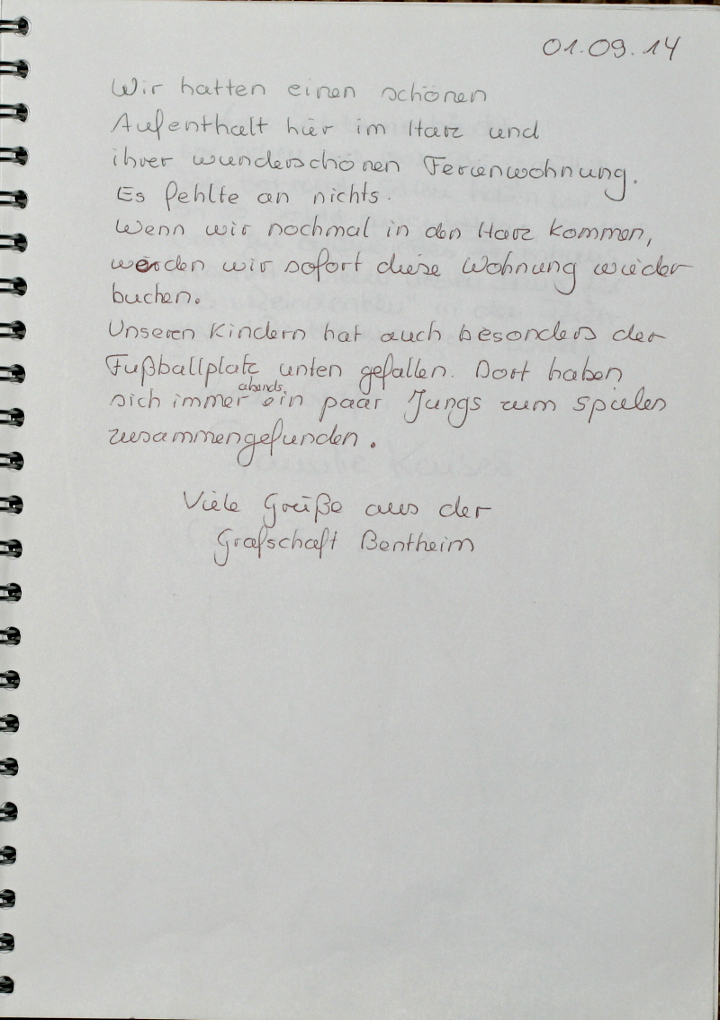 01.09.14
Wir hatten einen schönen
Aufenthalt hier im Harz und
ihrer wunderschönen Ferienwohnung.
Es fehlte an nichts.
Wenn wir nochmal in den Harz kommen,
werden wir sofort diese Wohnung wieder
buchen.
Unseren Kindern hat auch besonders der
Fußballplatz unten gefallen. Dort haben
sich immer abends ein paar Jungs zum spielen
zusammengefunden.
Viele Grüße aus der
Grafschaft Bentheim